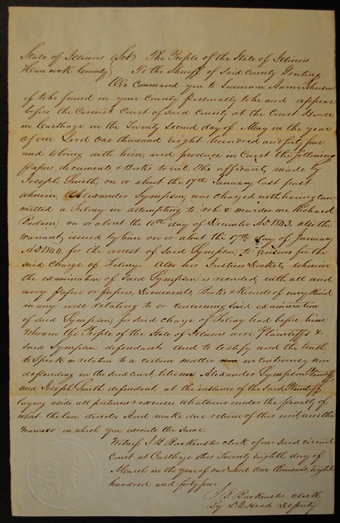 State of Illinois (Sct) The People of the State of Illinois
Hancock County) To the Sheriff of Said County Greeting
We Command you to Summon
if to be found in your County personally to be and appear
before the Circuit Court of said County at the Court House
in Carthage on the Twenty Second day of May in the year
of our Lord One thousand eight hundred and forty four
and to bring with him and produce in Court the following
papers documents & Books to wit. The affidavit made by
Joseph Smith, on or about the 17th January last past
wherein Alexander Sympson was charged with having com
mitted a Felony in attempting to rob & murder one Richard
Badam, on or about the 10th day of December AD 1843. also the
warrant, issued by him on or about the 17th day of January
AD 1844, for the arrest of said Sympson to answer for the
said Charge of Felony also his Justice Docket wherein
the examination of said Sympson is recorded, with all and
every paper or papers, Documents, Books & Records of every kind
in any wise relating to or concerning said examination
of said Sympson, for said charge of Felony had before him
wherein the People of the State of Illinois were Plaintiffs &
said Sympson defendant and to testify and the truth
to Speak in relation to a certain matter in Controversy now
depending in the said court, between Alexander Sympson Plaintiff
and Joseph Smith defendant at the instance of the said Plaintiff
laying aside all pretences & excuses whatsoever under the penalty of
what the law directs And make due return of this writ and the
manner in which you execute the same
Witness J B Backenstos clerk of our said circuit
Court at Carthage this Twenty Eighth day of
March in the year of our Lord One thousand eight
hundred and forty four
J B Backenstos Clerk
By Deputy